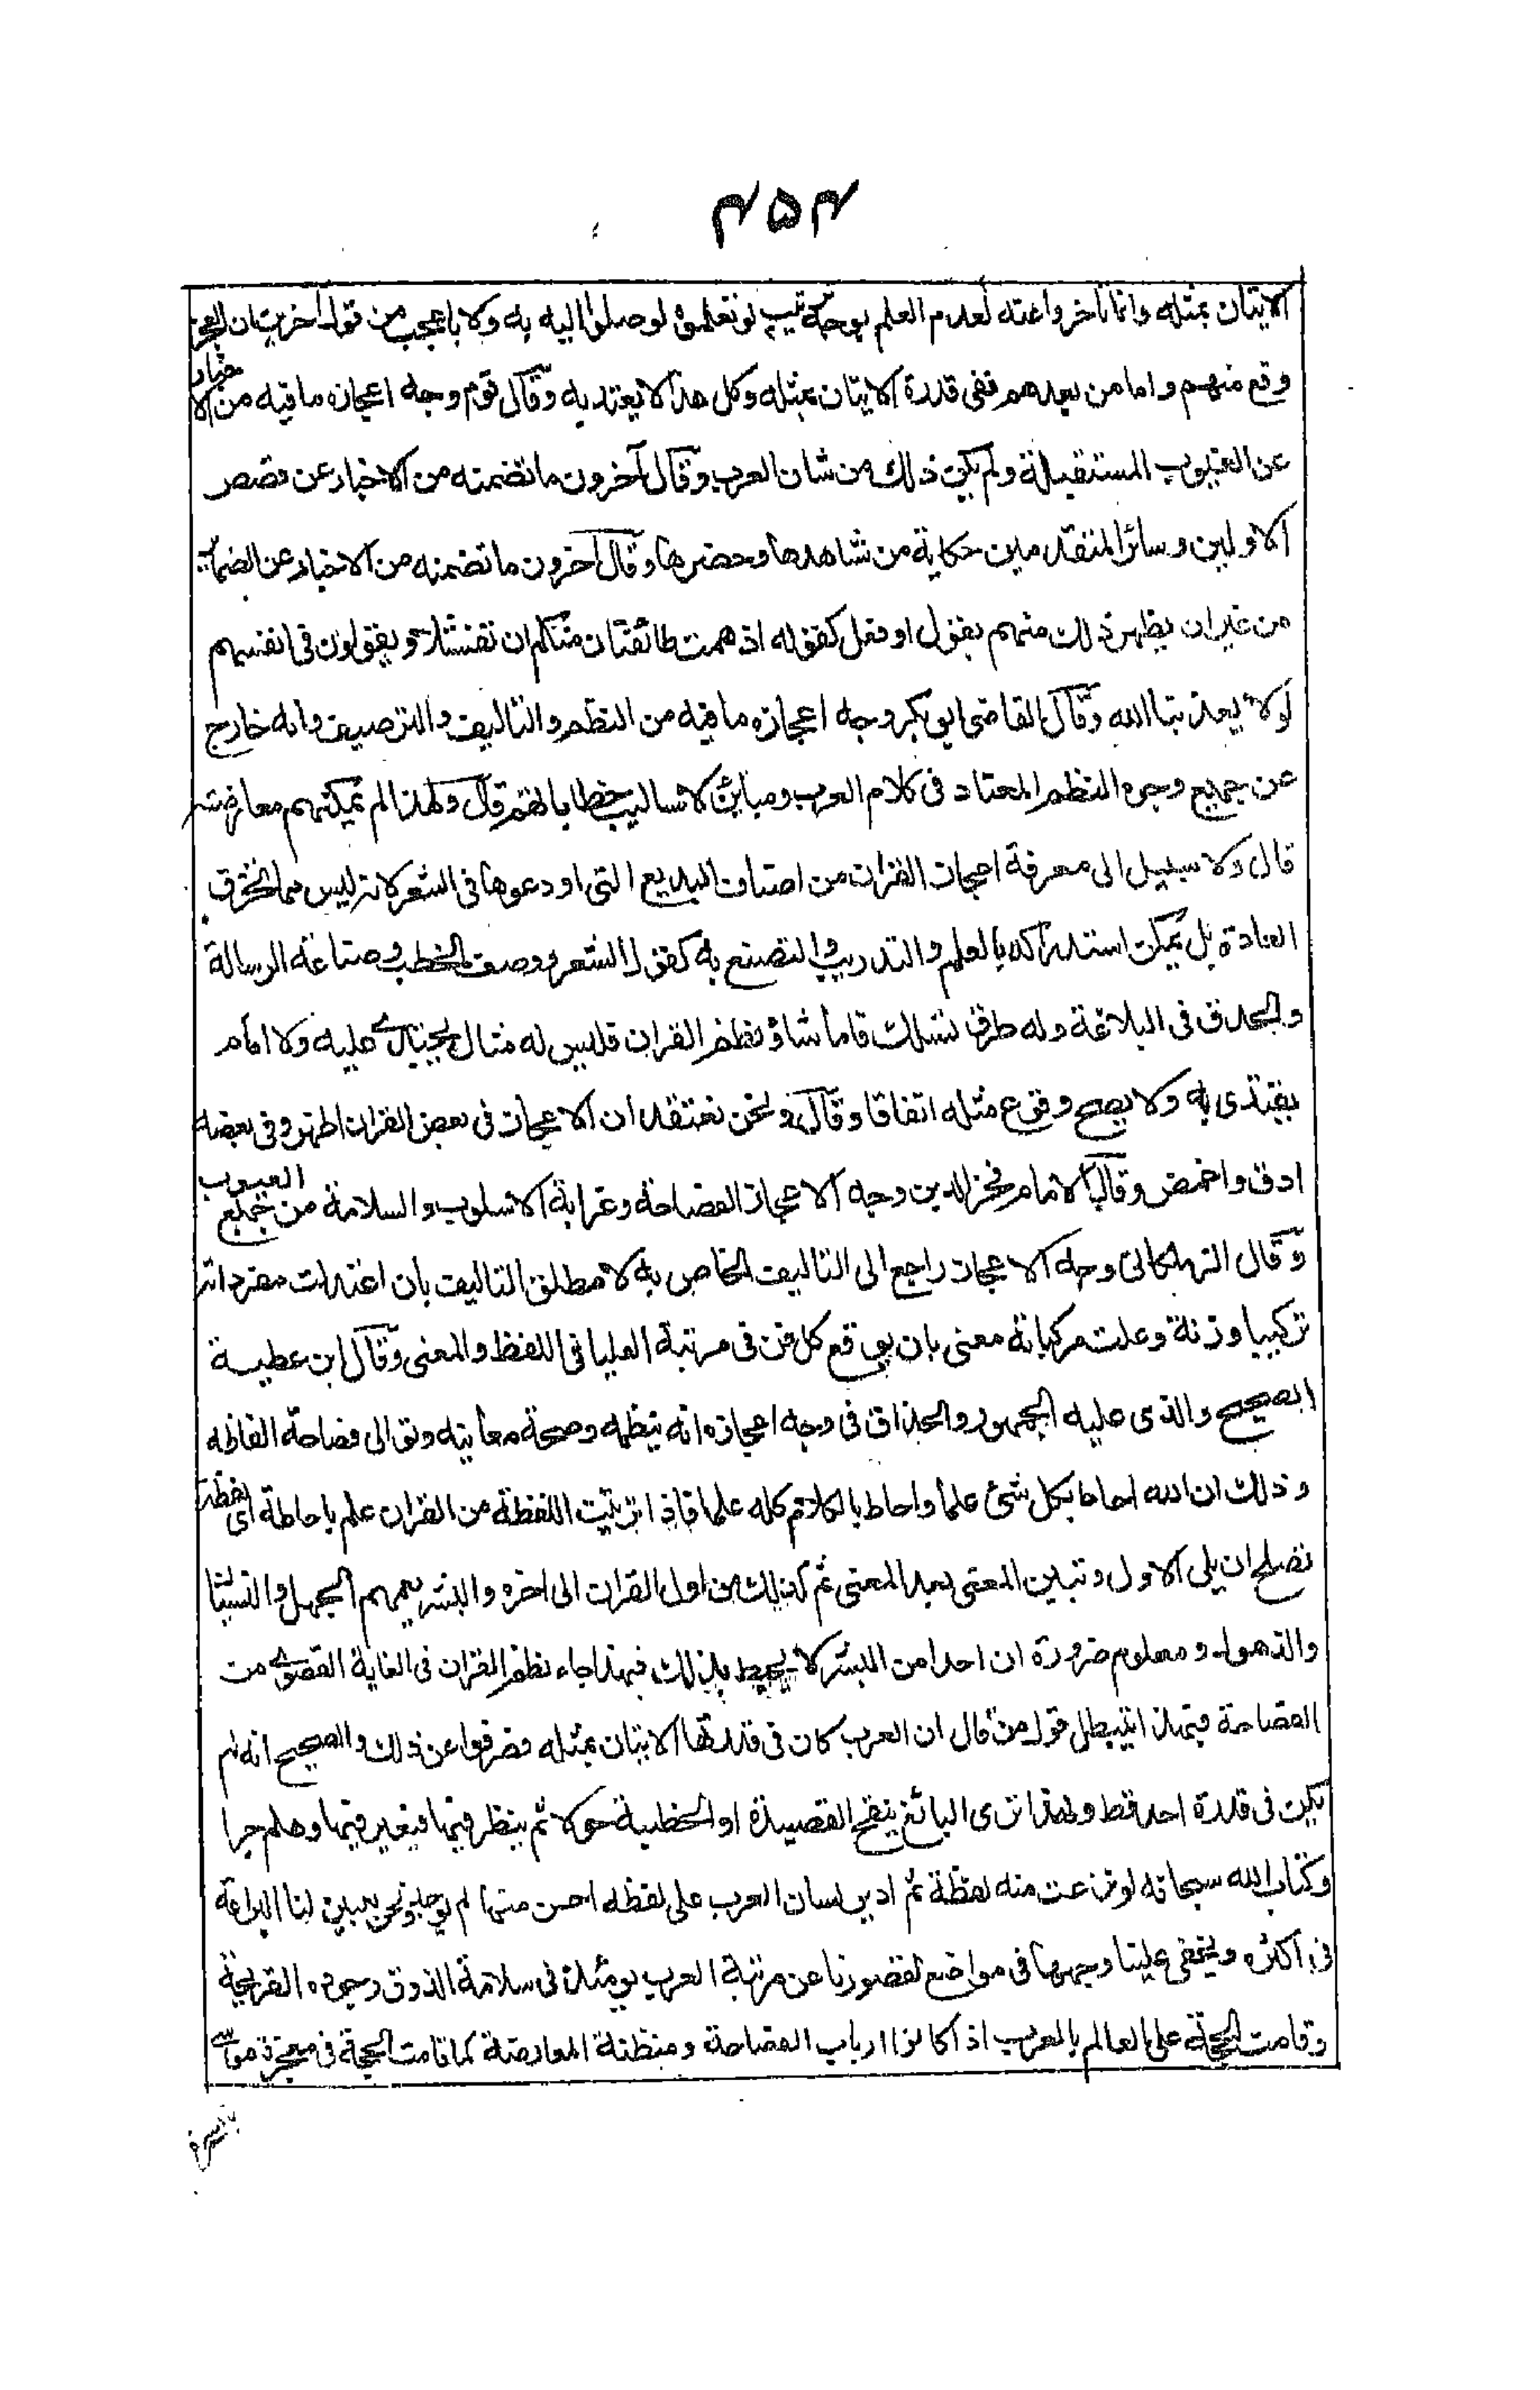 ۴۵۴
الاتيان بمثله وانما تأخروا عنه لعدم العلم بوجه ترتيب لو تعلموه لوصلوا اليه به ولا باعجب من قول آخرين ان العجز
وقع منهم واما من بعدهم ففى قدرة الاتيان بمثله وكل هذا لا يعتد به وقال قوم وجه اعجازه ما فيه من الاخبار
عن الغيوب المستقبلة ولم يكن ذلك من شان العرب وقال آخرون ما تضمنه من الاخبار عن قصص
الاولين وسائر المتقدمين حكاية من شاهدها وحضرها وقال آخرون ما تضمنه من الاخبار عن الضمائر
من غير ان يظهر ذلك منهم بقول او فعل كقوله اذ همت طائفتان منكم ان تفشلا ويقولون فى انفسهم
لولا يعذبنا الله وقال القاضى ابو بكر وجه اعجازه ما فيه من النظم والتاليف والترصيف وانه خارج
عن جميع وجوه النظم المعتاد فى كلام العرب ومباين لاساليب خطاباتهم قال ولهذا لم تمكنهم معارضته
قال ولا سبيل الى معرفة اعجاز القران من اصناف البديع التى اودعوها فى الشعر لانه ليس مما يخرق
العادة بل يمكن استدراكه بالعلم والتدريب والتصنع به كقول الشعر ووصف الخطب وصناعة الرسالة
والحذق فى البلاغة وله طرق تسلك فاما شاؤ نظم القران فليس له مثال يحتذى عليه ولا امام
يقتدى به ولا يصح وقوع مثله اتفاقا وقال ونحن نعتقد ان الاعجاز فى بعض القران اظهر وفى بعضه
ادق واغمض وقال الامام فخر الدين وجه الاعجاز الفصاحة وغرابة الاسلوب والسلامة من جميع العيوب
وقال الزملكانى وجه الاعجاز راجع الى التاليف الخاص به لا مطلق التاليف بان اعتدلت مفرداته
تركيبا وزنة وعلت مركباته معنى بان يوقع كل فن فى مرتبة العليا فى اللفظ والمعنى وقال ابن عطية
الصحيح والذى عليه الجمهور والحذاق فى وجه اعجازه انه بنظمه وصحة معانيه وتوالى فصاحة الفاظه
وذلك ان الله احاط بكل شئ علما واحاط بالكلام كله علما فاذا ترتبت اللفظة من القران علم باحاطة اى لفظة
تصلح ان يلى الاول وتبين المعنى بعد المعنى ثم كذلك من اول القران الى اخره والبشر يعمهم الجهل والنسيان
والذهول ومعلوم ضرورة ان احدا من البشر لا يحيط بذلك فبهذا جاء نظم القران فى الغاية القصوى من
الفصاحة وبهذا يبطل قول من قال ان العرب كان فى قدرتها الاتيان بمثله فصرفوا عن ذلك والصحيح انه لم
يكن فى قدرة احد قط ولهذا ترى البالغ ينقح القصيدة او الخطبة حولا ثم ينظر فيها فيغير فيها وهلم جرا
وكتاب الله سبحانه لو نزعت منه لفظة ثم ادير لسان العرب على لفظه احسن منها لم يوجد ونحن يبين لنا البراعة
فى اكثره ويخفى علينا وجهها فى مواضع لقصورنا عن مرتبة العرب يومئذ فى سلامة الذوق وجوده القريحة
وقامت الحجة على العالم بالعرب اذ كانوا ارباب الفصاحة ومنظنة المعارضة كما قامت الحجة فى معجزة موسى